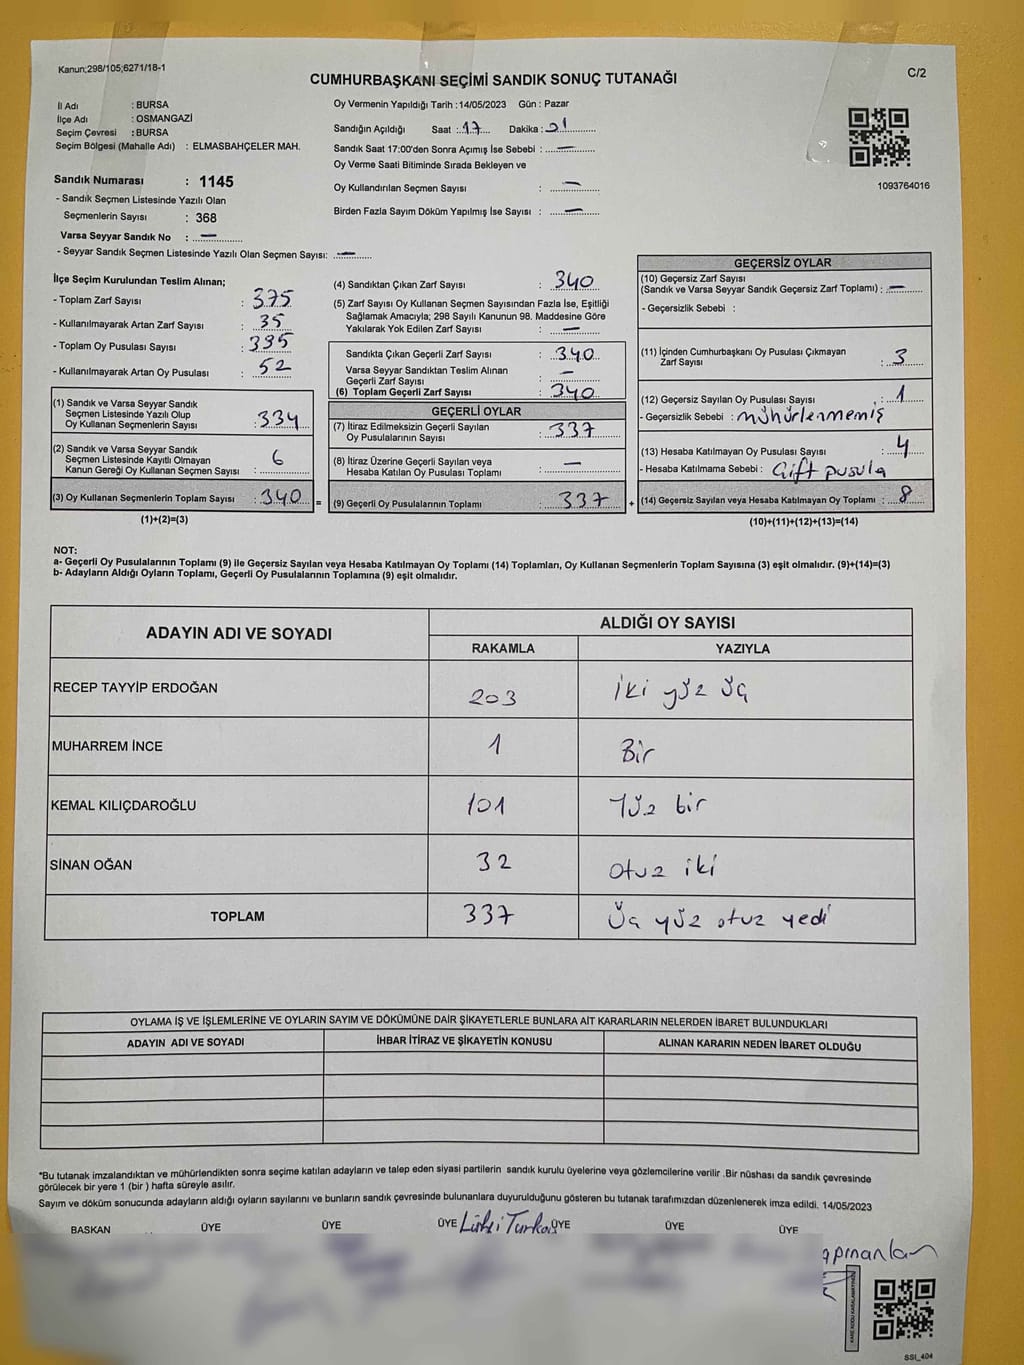 Kanun;298/105;6271/18-1
CUMHURBAŞKANI SEÇİMİ SANDIK SONUÇ TUTANAĞI
C/2
İl Adı : BURSA
İlçe Adı : OSMANGAZİ
Seçim Çevresi : BURSA
Seçim Bölgesi (Mahalle Adı) : ELMASBAHÇELER MAH.
Oy Vermenin Yapıldığı Tarih :14/05/2023 Gün : Pazar
Sandığın Açıldığı Saat :.17.... Dakika :.21............
Sandık Saat 17:00'den Sonra Açımış İse Sebebi : ...—.........
Oy Verme Saati Bitiminde Sırada Bekleyen ve
Oy Kullandırılan Seçmen Sayısı : ...—.........
Birden Fazla Sayım Döküm Yapılmış İse Sayısı : ...—.........
1093764016
Sandık Numarası : 1145
- Sandık Seçmen Listesinde Yazılı Olan
Seçmenlerin Sayısı : 368
Varsa Seyyar Sandık No : ..—.........
- Seyyar Sandık Seçmen Listesinde Yazılı Olan Seçmen Sayısı: ..—.........
İlçe Seçim Kurulundan Teslim Alınan;
- Toplam Zarf Sayısı : 375
- Kullanılmayarak Artan Zarf Sayısı : 35
- Toplam Oy Pusulası Sayısı : 395
- Kullanılmayarak Artan Oy Pusulası : 52
(1) Sandık ve Varsa Seyyar Sandık
Seçmen Listesinde Yazılı Olup
Oy Kullanan Seçmenlerin Sayısı : 334
(2) Sandık ve Varsa Seyyar Sandık
Seçmen Listesinde Kayıtlı Olmayan
Kanun Gereği Oy Kullanan Seçmen Sayısı : 6
(3) Oy Kullanan Seçmenlerin Toplam Sayısı : 340 =
(1)+(2)=(3)
(4) Sandıktan Çıkan Zarf Sayısı : 340
(5) Zarf Sayısı Oy Kullanan Seçmen Sayısından Fazla İse, Eşitliği
Sağlamak Amacıyla; 298 Sayılı Kanunun 98. Maddesine Göre
Yakılarak Yok Edilen Zarf Sayısı : —
Sandıkta Çıkan Geçerli Zarf Sayısı : 340
Varsa Seyyar Sandıktan Teslim Alınan
Geçerli Zarf Sayısı : —
(6) Toplam Geçerli Zarf Sayısı : 340
GEÇERLİ OYLAR
(7) İtiraz Edilmeksizin Geçerli Sayılan
Oy Pusulalarının Sayısı : 337
(8) İtiraz Üzerine Geçerli Sayılan veya
Hesaba Katılan Oy Pusulası Toplamı : —
(9) Geçerli Oy Pusulalarının Toplamı : 337 +
GEÇERSİZ OYLAR
(10) Geçersiz Zarf Sayısı
(Sandık ve Varsa Seyyar Sandık Geçersiz Zarf Toplamı) : —
- Geçersizlik Sebebi :
(11) İçinden Cumhurbaşkanı Oy Pusulası Çıkmayan
Zarf Sayısı : 3
(12) Geçersiz Sayılan Oy Pusulası Sayısı : 1
- Geçersizlik Sebebi : mühürlenmemiş
(13) Hesaba Katılmayan Oy Pusulası Sayısı : 4
- Hesaba Katılmama Sebebi : Çift pusula
(14) Geçersiz Sayılan veya Hesaba Katılmayan Oy Toplamı : 8
(10)+(11)+(12)+(13)=(14)
NOT:
a- Geçerli Oy Pusulalarının Toplamı (9) ile Geçersiz Sayılan veya Hesaba Katılmayan Oy Toplamı (14) Toplamları, Oy Kullanan Seçmenlerin Toplam Sayısına (3) eşit olmalıdır. (9)+(14)=(3)
b- Adayların Aldığı Oyların Toplamı, Geçerli Oy Pusulalarının Toplamına (9) eşit olmalıdır.
ADAYIN ADI VE SOYADI
ALDIĞI OY SAYISI
RAKAMLA YAZIYLA
RECEP TAYYİP ERDOĞAN 203 iki yüz üç
MUHARREM İNCE 1 Bir
KEMAL KILIÇDAROĞLU 101 Yüz bir
SİNAN OĞAN 32 otuz iki
TOPLAM 337 Üç yüz otuz yedi
OYLAMA İŞ VE İŞLEMLERİNE VE OYLARIN SAYIM VE DÖKÜMÜNE DAİR ŞİKAYETLERLE BUNLARA AİT KARARLARIN NELERDEN İBARET BULUNDUKLARI
ADAYIN ADI VE SOYADI İHBAR İTİRAZ VE ŞİKAYETİN KONUSU ALINAN KARARIN NEDEN İBARET OLDUĞU
*Bu tutanak imzalandıktan ve mühürlendikten sonra seçime katılan adayların ve talep eden siyasi partilerin sandık kurulu üyelerine veya gözlemcilerine verilir .Bir nüshası da sandık çevresinde
görülecek bir yere 1 (bir ) hafta süreyle asılır.
Sayım ve döküm sonucunda adayların aldığı oyların sayılarını ve bunların sandık çevresinde bulunanlara duyurulduğunu gösteren bu tutanak tarafımızdan düzenlenerek imza edildi. 14/05/2023
BAŞKAN ÜYE ÜYE ÜYE ÜYE ÜYE ÜYE
SSI_404